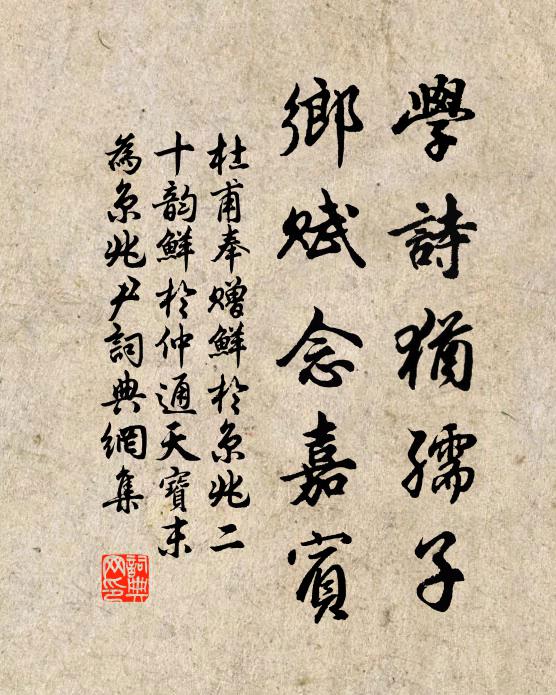 學詩猶孺子
鄉赋念嘉賓
杜甫奉赠鮮於京兆二
十韵鮮於仲通天寶末
為京兆尹詞典網集
詞典网印